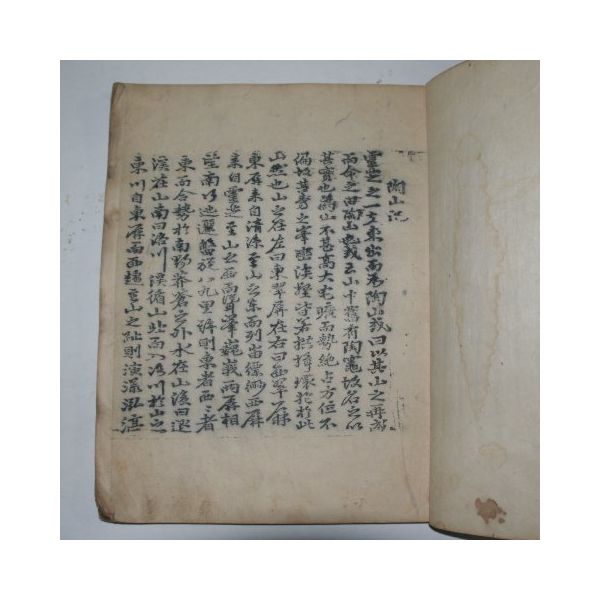 陶山記
靈芝之一支東出而爲陶山或曰以其山之再成
而命之曰陶山也或云山中舊有陶竈故名之以
其實也爲山不甚高大宅曠而勢絶占方位不
偏故其旁之峯巒溪壑皆若拱揖環抱於此
山然也山之在左曰東翠屛在右曰西翠屛
東屛來自淸凉至山之東而列岫縹緲西屛
來自靈芝至山之西而聳峯巍峨兩屛相
望南行迤邐盤旋八九里許則東者西々者
東而合勢於南野莽蒼之外水在山後曰退
溪在山南曰洛川溪循山北而入洛川於山之
東川自東屛而西趨至山之趾則演漾泓渟